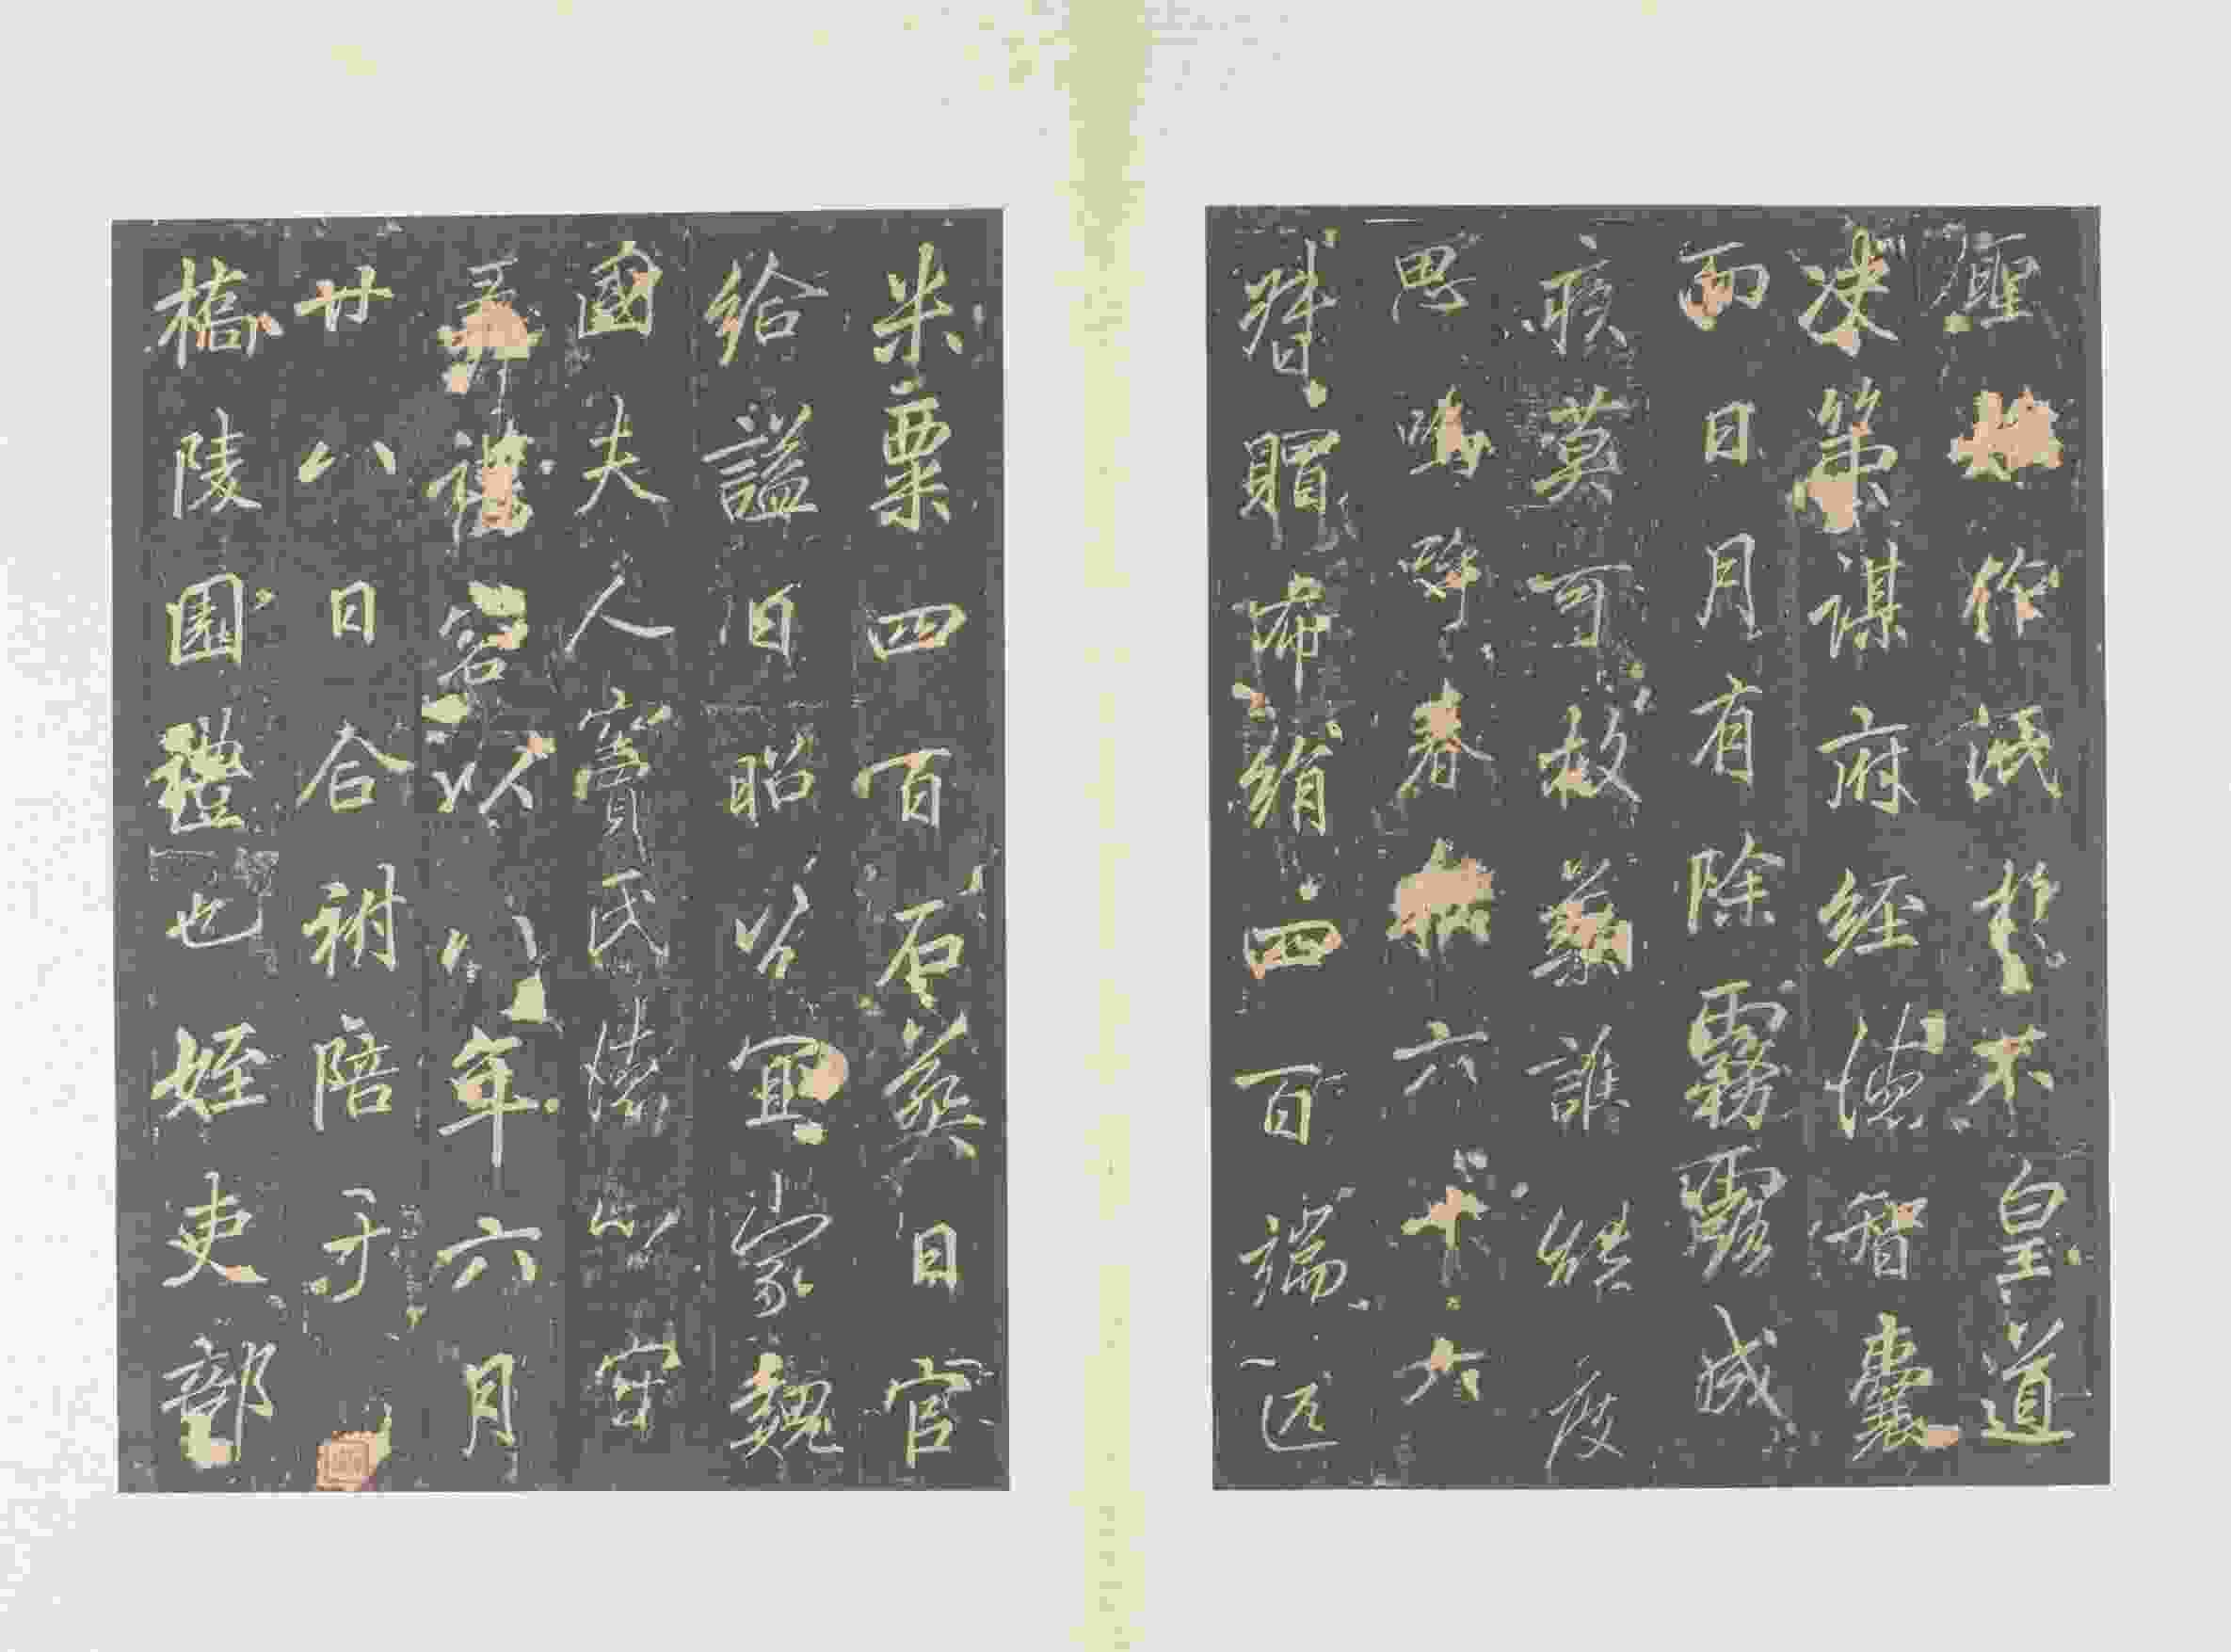 作誡於不皇道
決策謀府經德智囊
而日月有除霧露成
疾莫可救藥誰能度
思嗚呼春秋六十六
賵布絹四百端疋
米粟四百石葬日官
給諡曰昭公宜家魏
國夫人竇氏
禮名以八年六月
廿八日合祔陪于
橋陵園禮也姪吏部